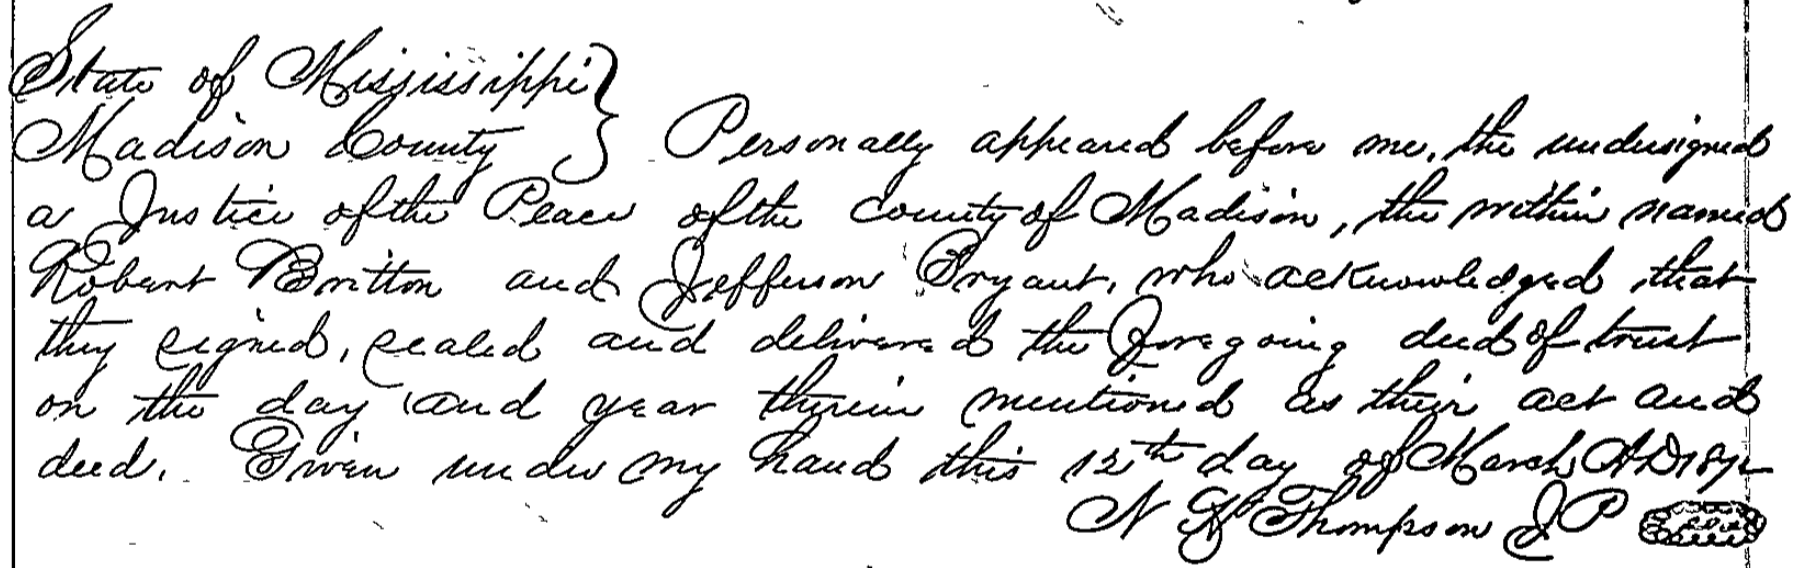 State of Mississippi }
Madison County } Personally appeared before me, the undersigned
a Justice of the Peace of the County of Madison, the within named
Robert Britton and Jefferson Bryant, who acknowledged that
they signed, sealed and delivered the foregoing deed of trust
on the day and year therein mentioned as their act and
deed. Given under my hand this 12th day of March AD 1872
N Thompson JP